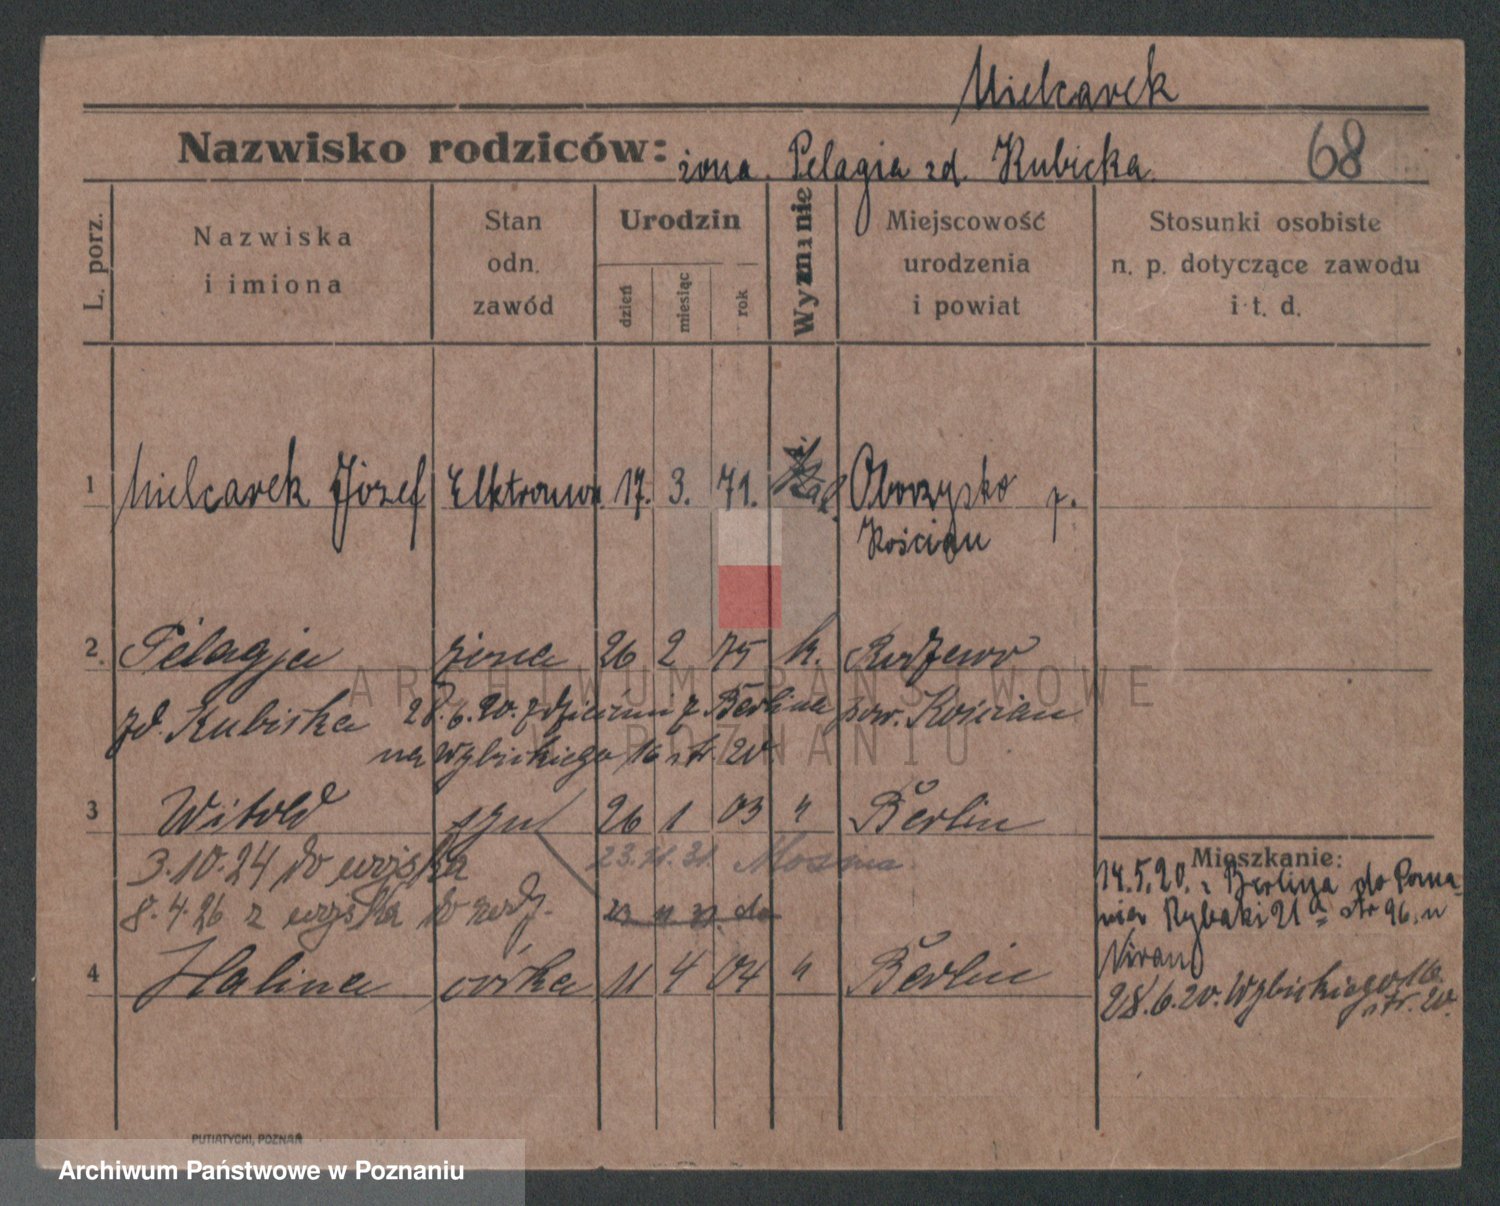 Mielcarek
Nazwisko rodziców: żona Pelagia zd. Kubicka. 68
L. porz.
Nazwiska
i imiona
Stan
odn.
zawód
Urodzin
dzień
miesiąc
rok
Wyznanie
Miejscowość
urodzenia
i powiat
Stosunki osobiste
n. p. dotyczące zawodu
i t. d.
1 Mielcarek Józef 17. 3. 71. Oborzysko p.
Kościan
2. Pelagja żona 26 2 75 k.
zd. Kubiska 28.6.20. z dziećmi z Berlina pow. Kościan
na Wybickiego 16 str. 20.
3 Witold syn 26 1 03 " Berlin
3.10.24 do wojska 23.11.31. Mosina
8.4.26 z wojska do rodz. 23 11 31. do
4 Halina córka 11 4 04 " Berlin
Mieszkanie:
14.5.20. z Berlina do Pozna-
nia Rybaki 21a str 96. u
28.6.20. Wybickiego 16.
str. 20.
PUTIATYCKI, POZNAŃ
ARCHIWUM PAŃSTWOWE
W POZNANIU
Archiwum Państwowe w Poznaniu